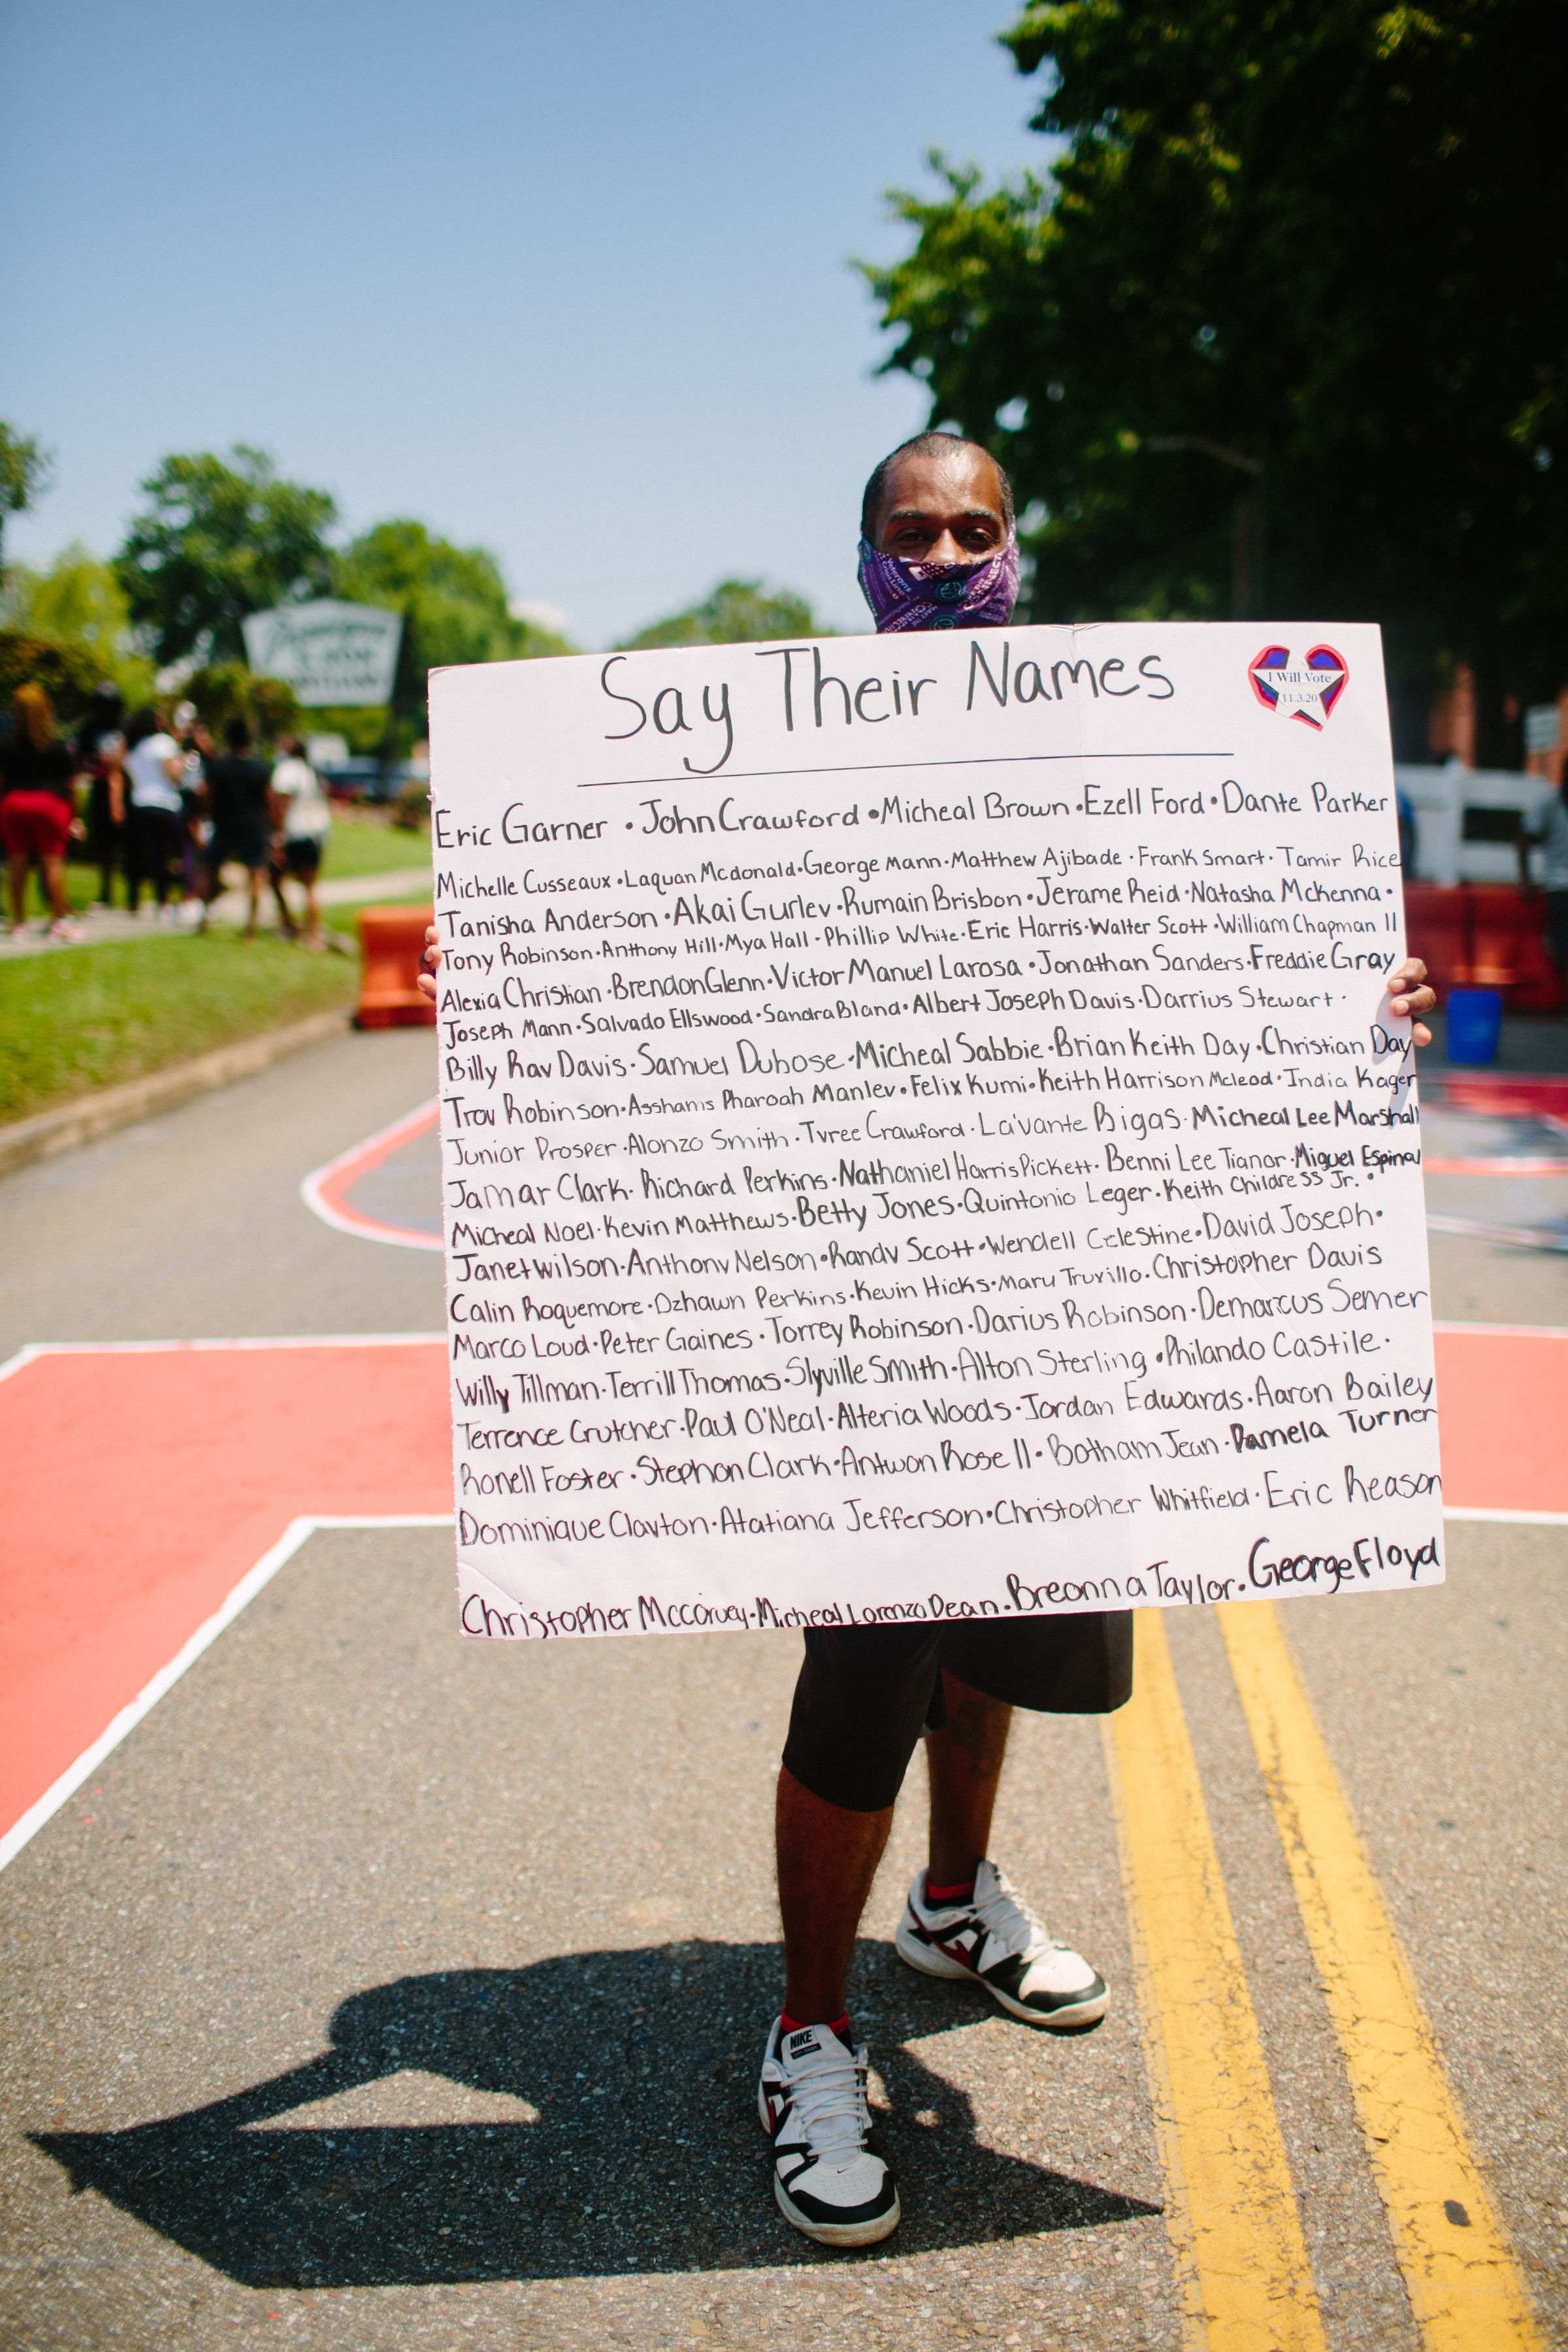 Say Their Names
I Will Vote
11.3.20
Eric Garner • John Crawford • Micheal Brown • Ezell Ford • Dante Parker
Michelle Cusseaux • Laquan Mcdonald • George Mann • Matthew Ajibade • Frank Smart • Tamir Rice
Tanisha Anderson • Akai Gurley • Rumain Brisbon • Jerame Reid • Natasha Mckenna •
Tony Robinson • Anthony Hill • Mya Hall • Phillip White • Eric Harris • Walter Scott • William Chapman II
Alexia Christian • Brendon Glenn • Victor Manuel Larosa • Jonathan Sanders • Freddie Gray
Joseph Mann • Salvado Ellswood • Sandra Bland • Albert Joseph Davis • Darrius Stewart •
Billy Ray Davis • Samuel Dubose • Micheal Sabbie • Brian Keith Day • Christian Day
Troy Robinson • Asshams Pharoah Manley • Felix Kumi • Keith Harrison Mcleod • India Kager
Junior Prosper • Alonzo Smith • Tyree Crawford • La'vante Bigas • Micheal Lee Marshall
Jamar Clark • Richard Perkins • Nathaniel Harris Pickett • Benni Lee Tianor • Miguel Espinal
Micheal Noel • Kevin Matthews • Betty Jones • Quintonio Leger • Keith Childress Jr. •
Janet Wilson • Anthony Nelson • Randy Scott • Wendell Celestine • David Joseph •
Calin Roquemore • Dzhawn Perkins • Kevin Hicks • Mary Truxillo • Christopher Davis
Marco Loud • Peter Gaines • Torrey Robinson • Darius Robinson • Demarcus Semer
Willy Tillman • Terrill Thomas • Slyville Smith • Alton Sterling • Philando Castile •
Terrence Crutcher • Paul O'Neal • Alteria Woods • Jordan Edwards • Aaron Bailey
Ronell Foster • Stephon Clark • Antwon Rose II • Botham Jean • Pamela Turner
Dominique Clayton • Atatiana Jefferson • Christopher Whitfield • Eric Reason
Christopher Mccorvey • Micheal Lorenzo Dean • Breonna Taylor • George Floyd
NIKE